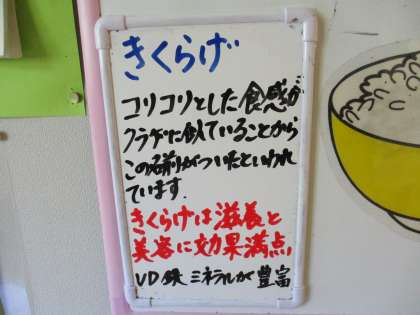 きくらげ
コリコリとした食感が
クラゲに似ていることから
この名前がついたといわれ
ています.
きくらげは滋養と
美容に効果満点,
VD 鉄 ミネラルが豊富